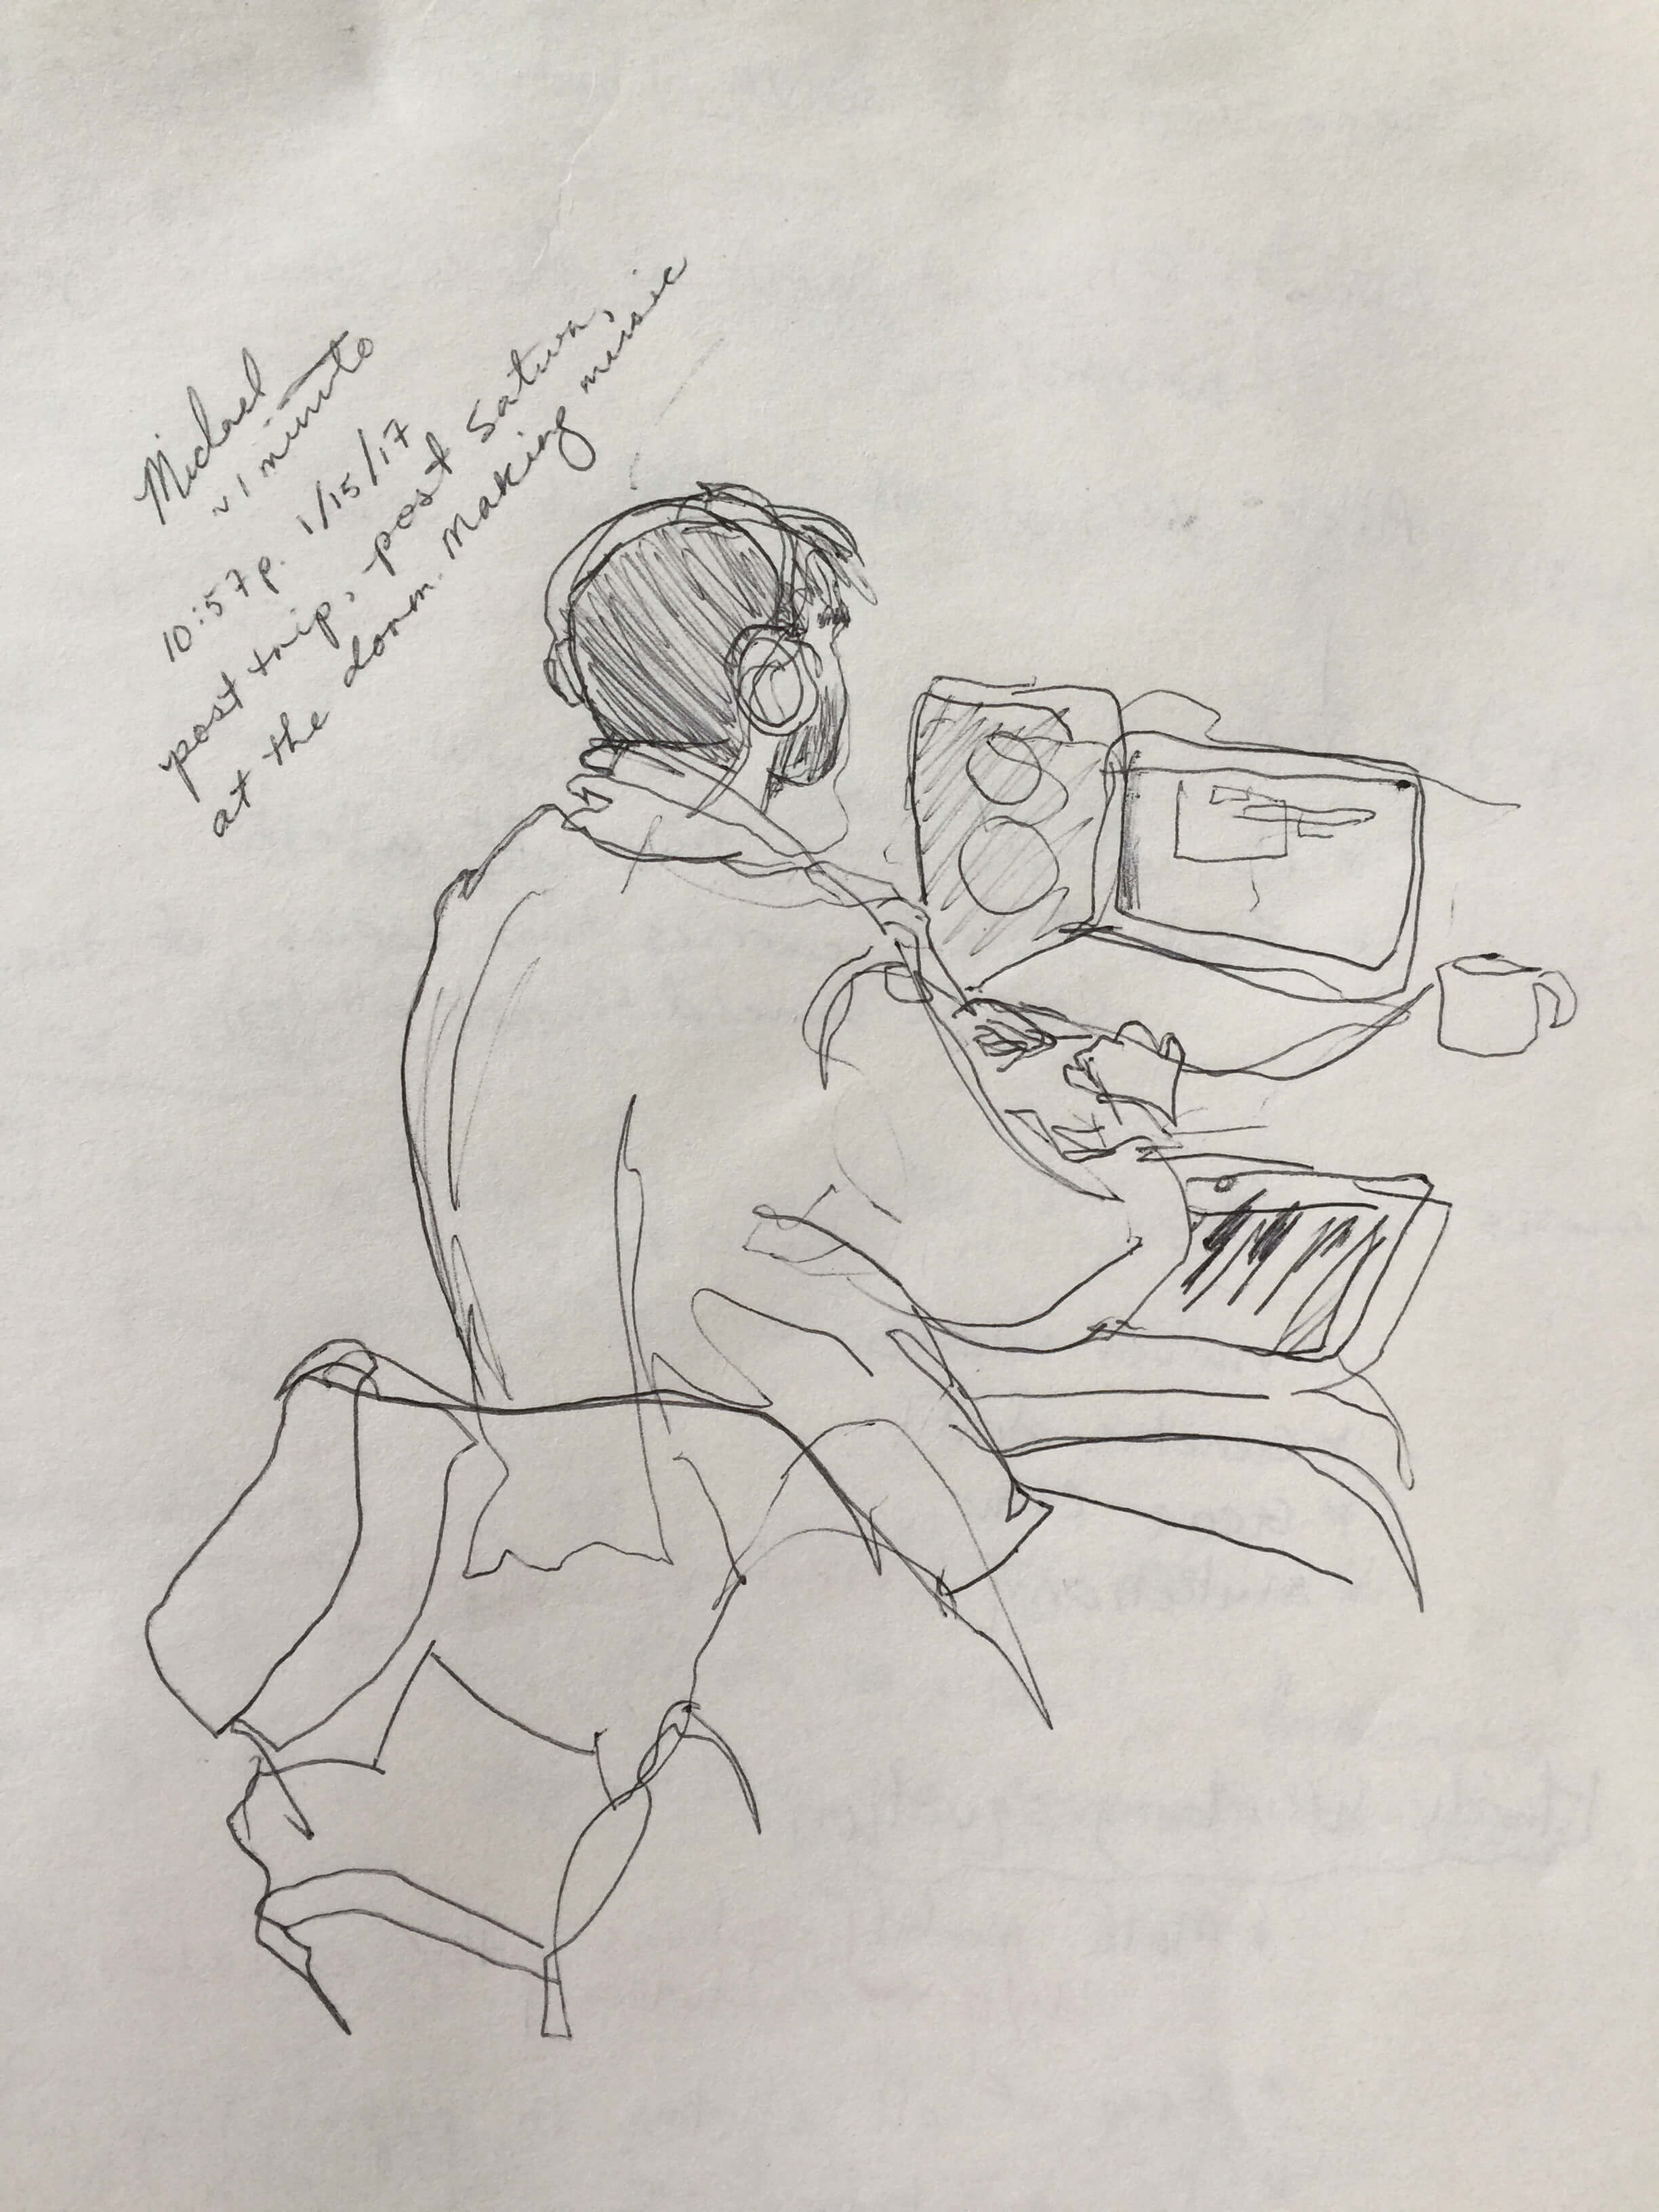 Michael
~ 1 minute
10:57p. 1/15/17
post trip, post Saturn,
at the dorm. Making music